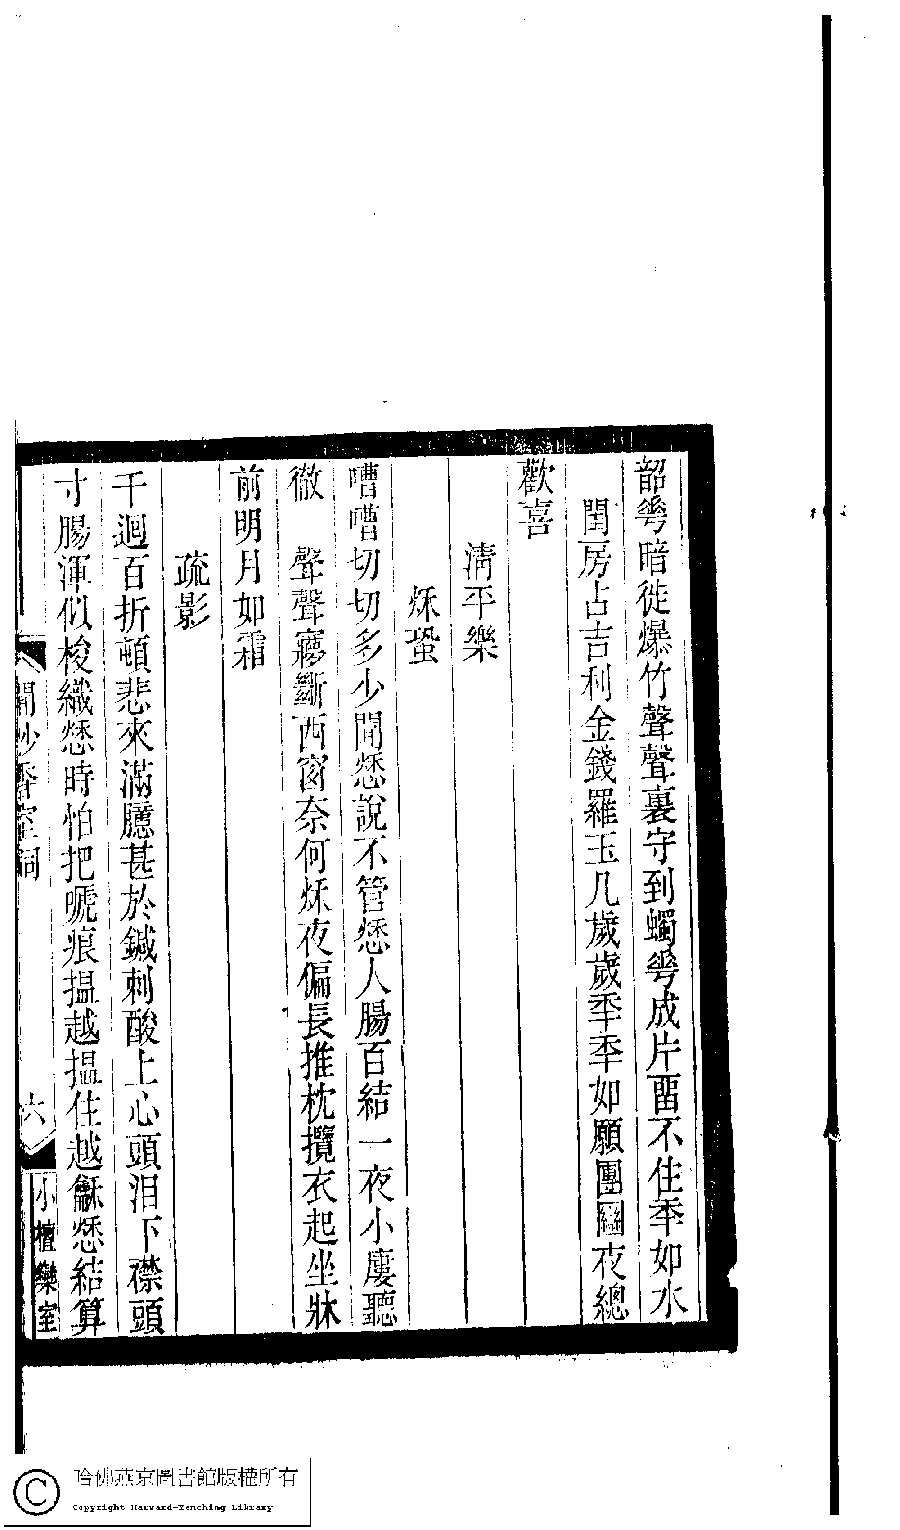 韶華暗徙爆竹聲聲裏守到蠋華成片畱不住秊如水
閨房占吉利金錢羅玉几歲歲秊秊如願團圞夜總
歡喜
清平樂
秌蛩
嘈嘈切切多少閒愁說不管愁人腸百結一夜小廔聽
徹　聲聲寱斷西窗奈何秌夜偏長推枕攬衣起坐牀
前明月如霜
疏影
千迴百折頓悲來滿臆甚於鍼刺酸上心頭泪下襟頭
寸腸渾似梭織愁時怕把嗁痕搵越搵住越龢愁結算
聞妙香室詞
六
小檀欒室
哈佛燕京圖書館版權所有
Copyright Harvard-Yenching Library